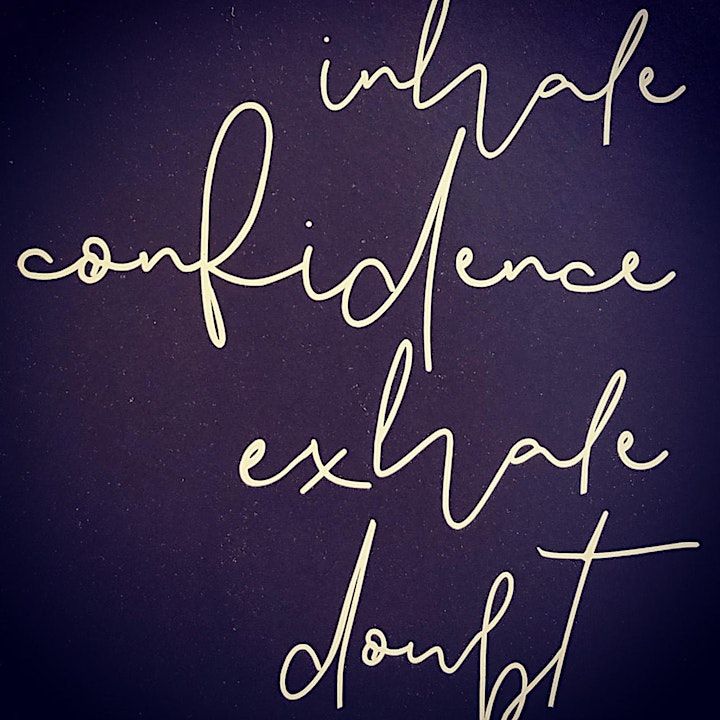 inhale
confidence
exhale
doubt